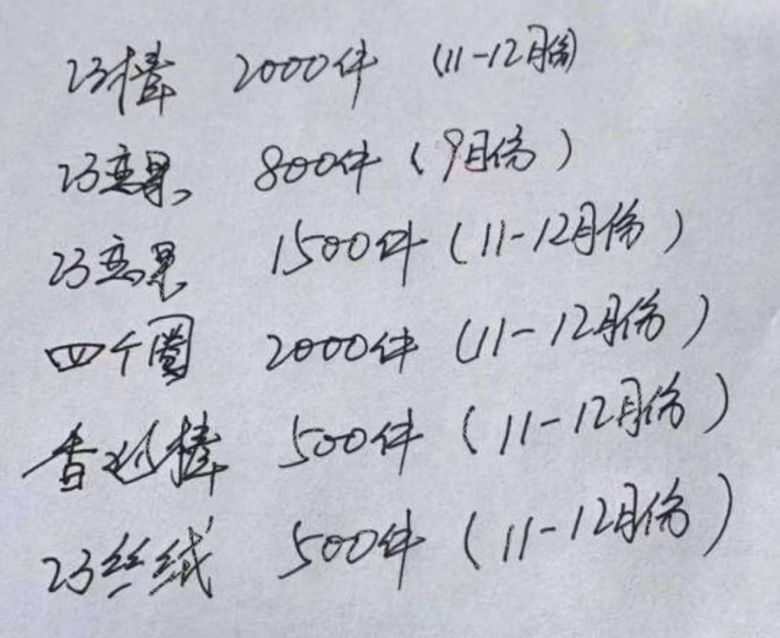 23棒 2000件 (11-12月份)
23恋果 800件 (9月份)
23恋果 1500件 (11-12月份)
四个圈 2000件 (11-12月份)
香巧棒 500件 (11-12月份)
23丝绒 500件 (11-12月份)